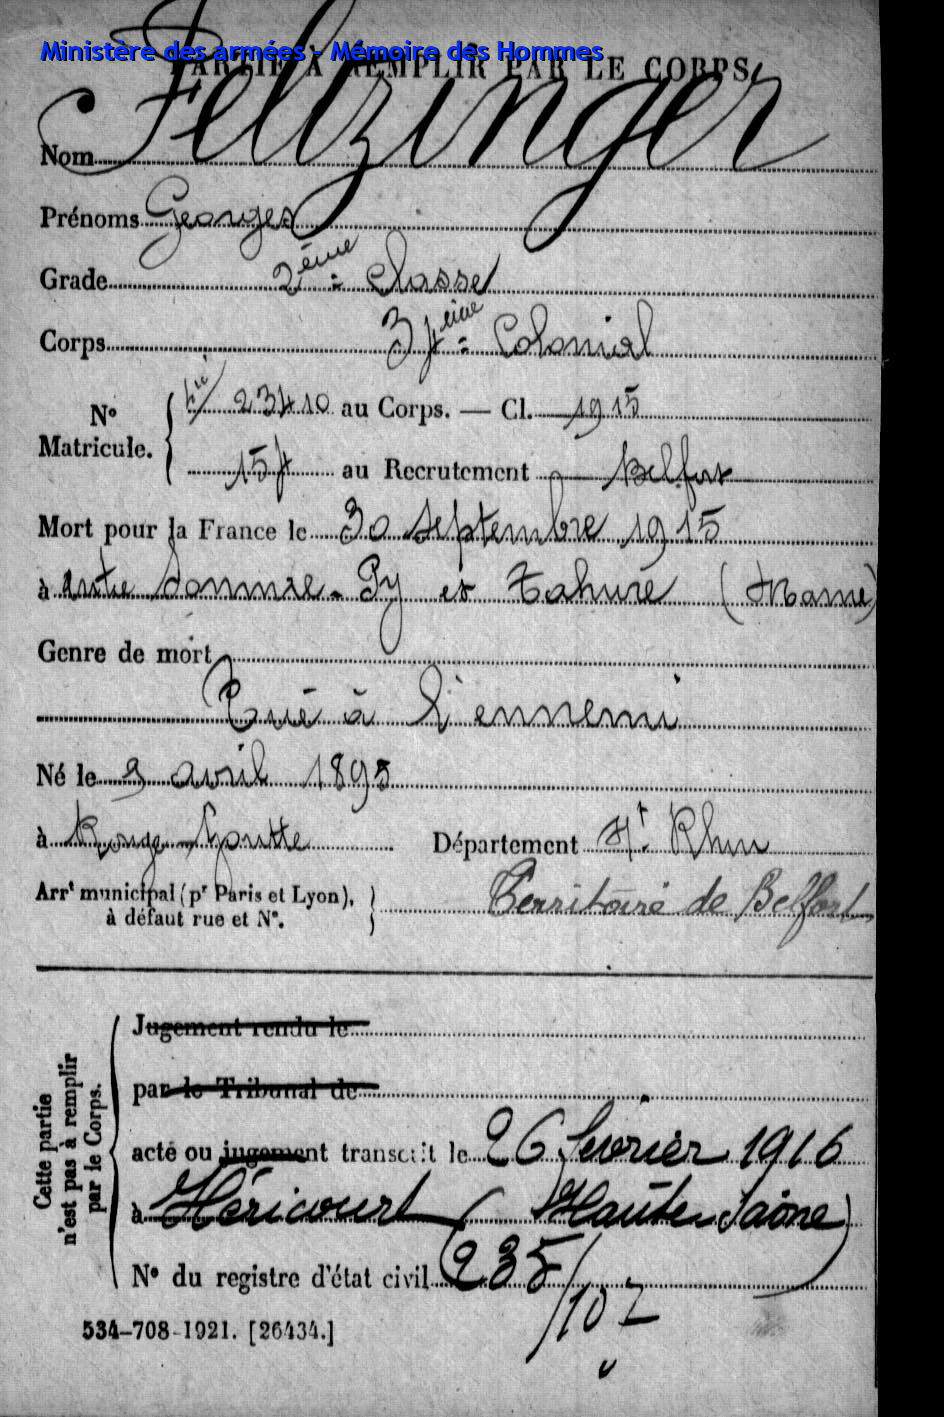 Ministère des armées - Mémoire des Hommes
PARTIE À REMPLIR PAR LE CORPS.
Nom Feltzinger
Prénoms Georges
Grade 2ème classe
Corps 37ème Colonial
N° Matricule. 23410 au Corps. — Cl. 1915
157 au Recrutement Belfort
Mort pour la France le 30 septembre 1915
à entre Somme-Py et Tahure (Marne)
Genre de mort
Tué à l'ennemi
Né le 9 avril 1895
à Rouge-Goutte Département Ht Rhin
Arrt municipal (pr Paris et Lyon), à défaut rue et N°. Territoire de Belfort
Cette partie n'est pas à remplir par le Corps.
Jugement rendu le
par le Tribunal de
acte ou jugement transcrit le 26 février 1916
à Héricourt (Haute Saône)
N° du registre d'état civil 235/107
534-708-1921. [26434.]